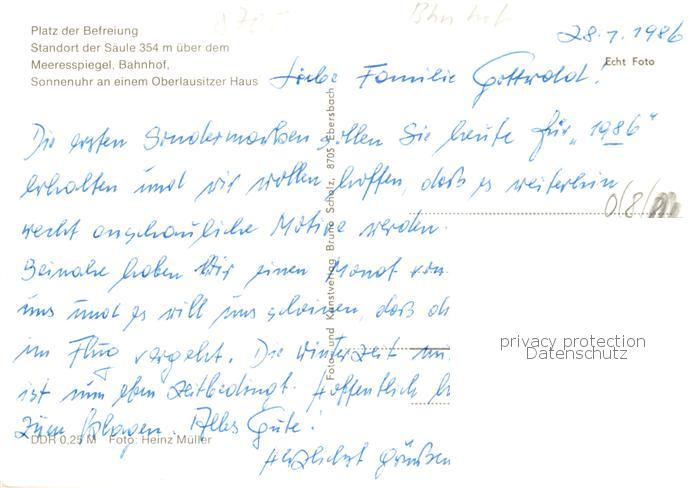 Platz der Befreiung
Standort der Säule 354 m über dem
Meeresspiegel, Bahnhof,
Sonnenuhr an einem Oberlausitzer Haus
Bhnhof
28.1.1986
Echt Foto
Liebe Familie Gottwald!
Die ersten Sondermarken sollen Sie heute für "1986"
erhalten und wir wollen hoffen, daß es weiterhin
recht anschauliche Motive werden.
Beinahe haben wir einen Monat von
uns und es will uns scheinen, daß
im Flug vergeht. Die Winterzeit
ist nun eben zeitbedingt. Hoffentlich
zum Alles Gute!
Herzlichst grüßen
Foto- und Kunstverlag Bruno Scholz, 8705 Ebersbach
DDR 0,25 M Foto: Heinz Müller
0/8/
privacy protection
Datenschutz